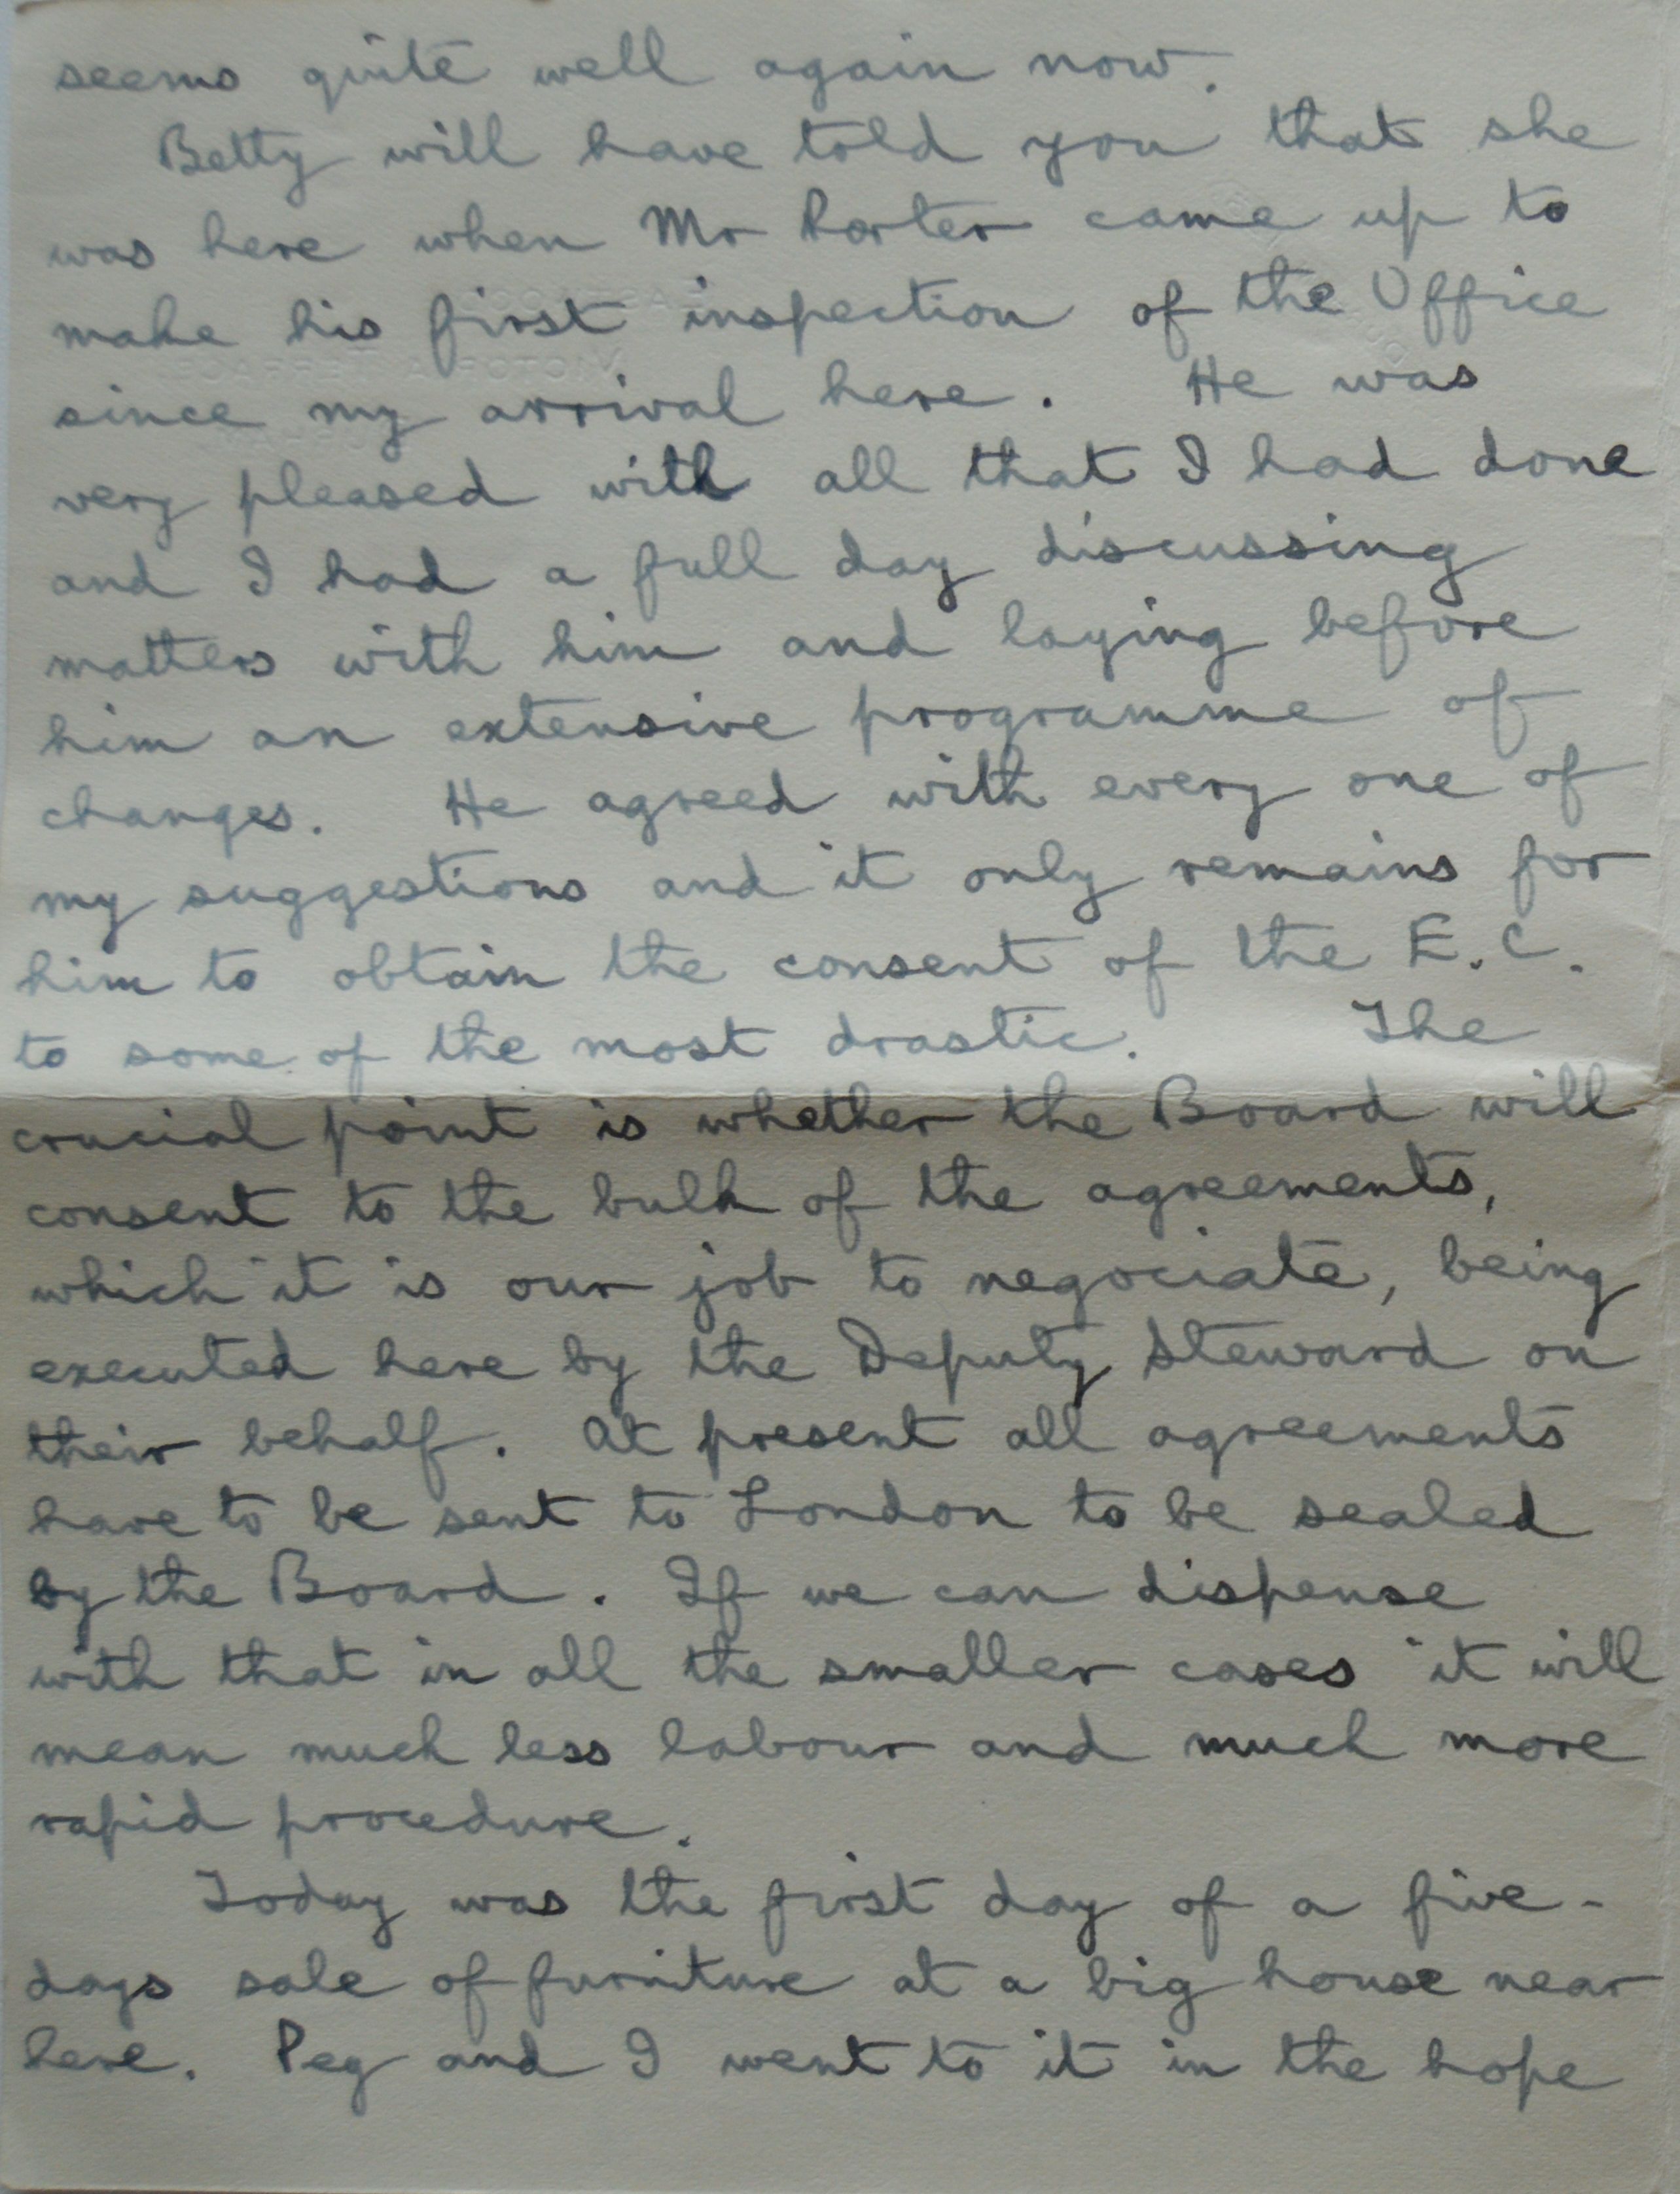 seems quite well again now.
Betty will have told you that she
was here when Mr Porter came up to
make his first inspection of the Office
since my arrival here. He was
very pleased with all that I had done
and I had a full day discussing
matters with him and laying before
him an extensive programme of
changes. He agreed with every one of
my suggestions and it only remains for
him to obtain the consent of the E.C.
to some of the most drastic. The
crucial point is whether the Board will
consent to the bulk of the agreements,
which it is our job to negociate, being
executed here by the Deputy Steward on
their behalf. At present all agreements
have to be sent to London to be sealed
by the Board. If we can dispense
with that in all the smaller cases it will
mean much less labour and much more
rapid procedure.
Today was the first day of a five-
days sale of furniture at a big house near
here. Peg and I went to it in the hope